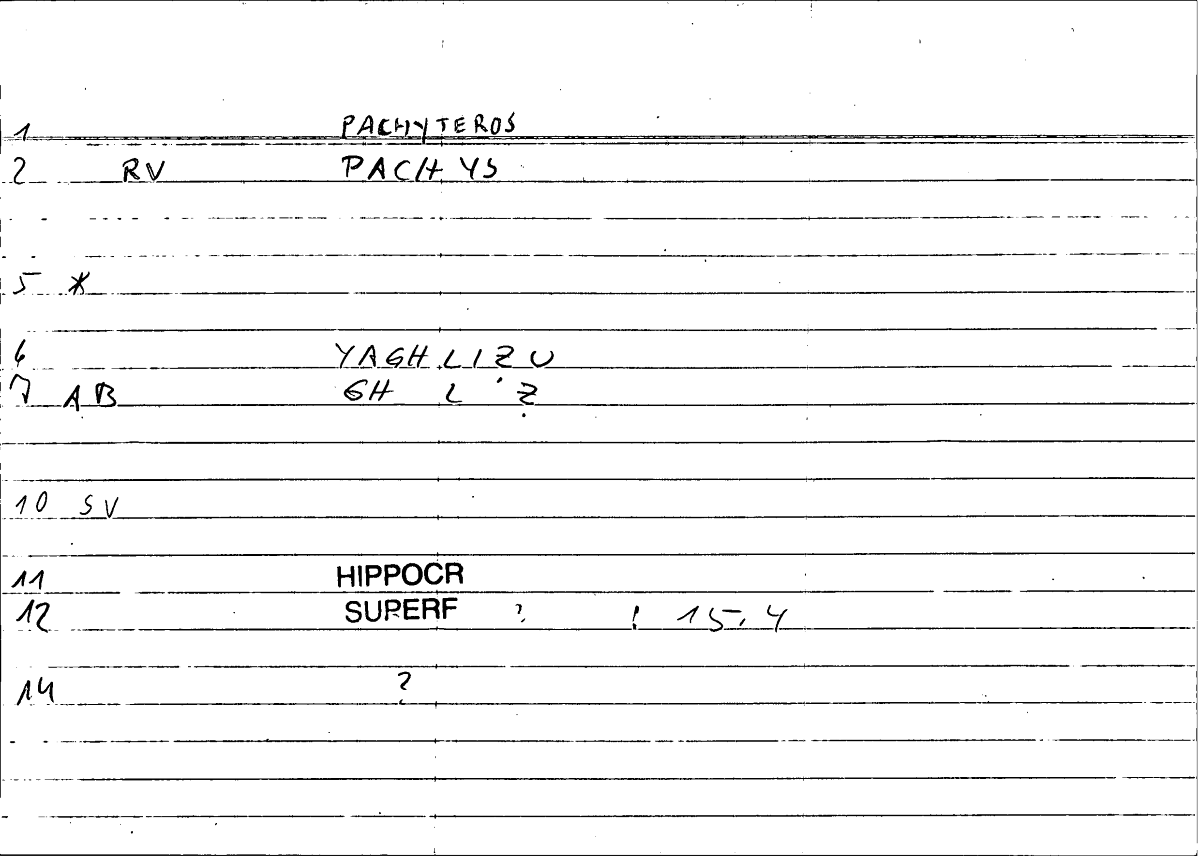 1 PACHYTEROS
2 RV PACHYS
5 *
6 YAGHLIẒU
7 AB GH L Ẓ
10 SV
11 HIPPOCR
12 SUPERF ? ! 15,4
14 ?